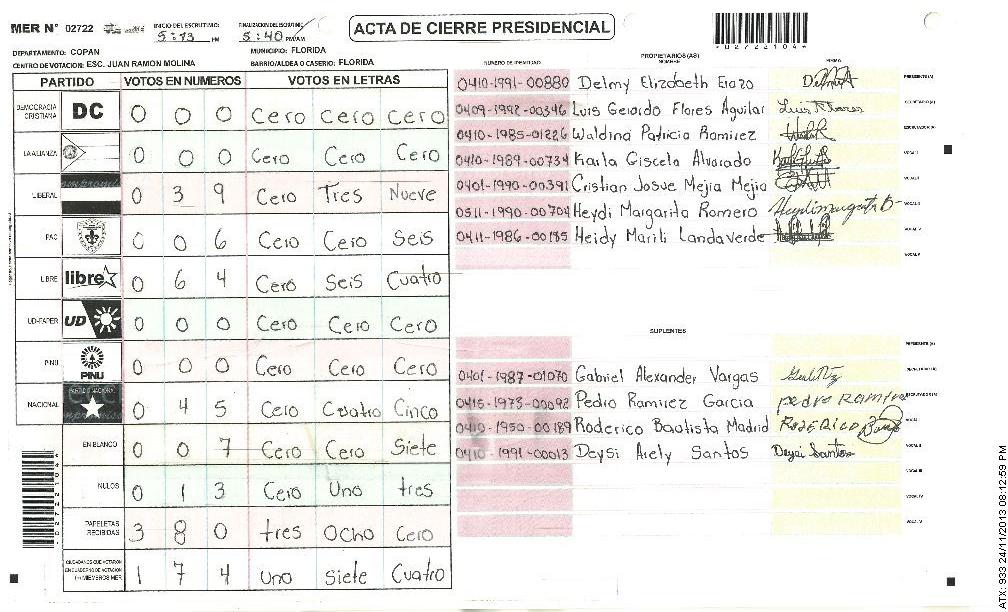 MER N° 02722
INICIO DEL ESCRUTINIO: 5:13 PM
FINALIZACION DEL ESCRUTINIO: 5:40 PM/AM
ACTA DE CIERRE PRESIDENCIAL
DEPARTAMENTO: COPAN
MUNICIPIO: FLORIDA
CENTRO DE VOTACION: ESC. JUAN RAMON MOLINA
BARRIO/ALDEA O CASERIO: FLORIDA
PARTIDO VOTOS EN NUMEROS VOTOS EN LETRAS
DEMOCRACIA CRISTIANA DC 0 0 0 Cero Cero Cero
LA ALIANZA 0 0 0 Cero Cero Cero
LIBERAL 0 3 9 Cero Tres Nueve
PAC 0 0 6 Cero Cero Seis
LIBRE libre 0 6 4 Cero Seis Cuatro
UD-FAPER UD 0 0 0 Cero Cero Cero
PINU PINU 0 0 0 Cero Cero Cero
NACIONAL PARTIDO NACIONAL 0 4 5 Cero Cuatro Cinco
EN BLANCO 0 0 7 Cero Cero Siete
NULOS 0 1 3 Cero Uno tres
PAPELETAS RECIBIDAS 3 8 0 tres Ocho Cero
CIUDADANOS QUE VOTARON EN CUADERNO DE VOTACION (+) MIEMBROS MER 1 7 4 uno Siete Cuatro
PROPIETARIOS(AS)
NUMERO DE IDENTIDAD NOMBRE FIRMA
0410-1991-00880 Delmy Elizabeth Erazo PRESIDENTE(A)
0409-1992-00346 Luis Gerardo Flores Aguilar Luis Flores SECRETARIO(A)
0410-1985-01226 Waldina Patricia Ramirez ESCRUTADOR(A)
0410-1989-00734 Karla Giscela Alvarado VOCAL I
0401-1990-00391 Cristian Josue Mejia Mejia VOCAL II
0511-1990-00704 Heydi Margarita Romero Heydi margarita VOCAL III
0411-1986-00185 Heidy Marili Landaverde VOCAL IV
VOCAL V
SUPLENTES
PRESIDENTE(A)
0401-1987-01070 Gabriel Alexander Vargas SECRETARIO(A)
0415-1973-00092 Pedro Ramirez Garcia pedro Ramirez ESCRUTADOR(A)
0410-1950-00189 Roderico Bautista Madrid RODERICO VOCAL I
0410-1991-00013 Deysi Arely Santos Deysi Santos VOCAL II
VOCAL III
VOCAL IV
VOCAL V
ATX: 933 24/11/2013 08:12:59 PM